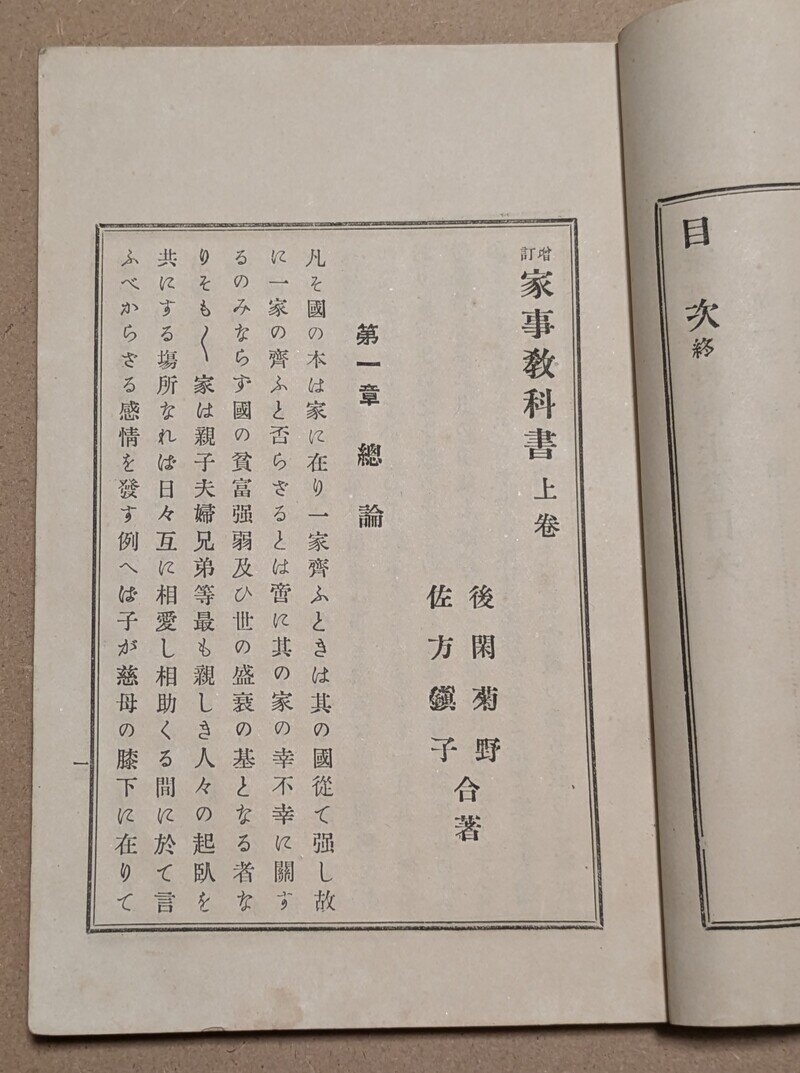 目次終
増訂 家事教科書 上卷
後閑菊野
佐方鎭子
合著
第一章 總論
凡そ國の本は家に在り一家齊ふときは其の國從て强し故
に一家の齊ふと否らざるとは啻に其の家の幸不幸に關す
るのみならず國の貧富强弱及ひ世の盛衰の基となる者な
りそも〱家は親子夫婦兄弟等最も親しき人々の起臥を
共にする塲所なれは日々互に相愛し相助くる間に於て言
ふべからさる感情を發す例へは子が慈母の膝下に在りて
一